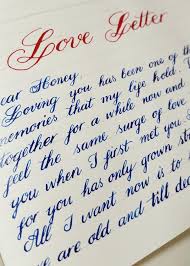 Love Letter
ear Honey,
Loving you has been one of t
memories that my life hold. T
together for a while now and
feel the same surge of love
you when I first met you &
for you has only grown stro
All I want now is to
e are old and till dea